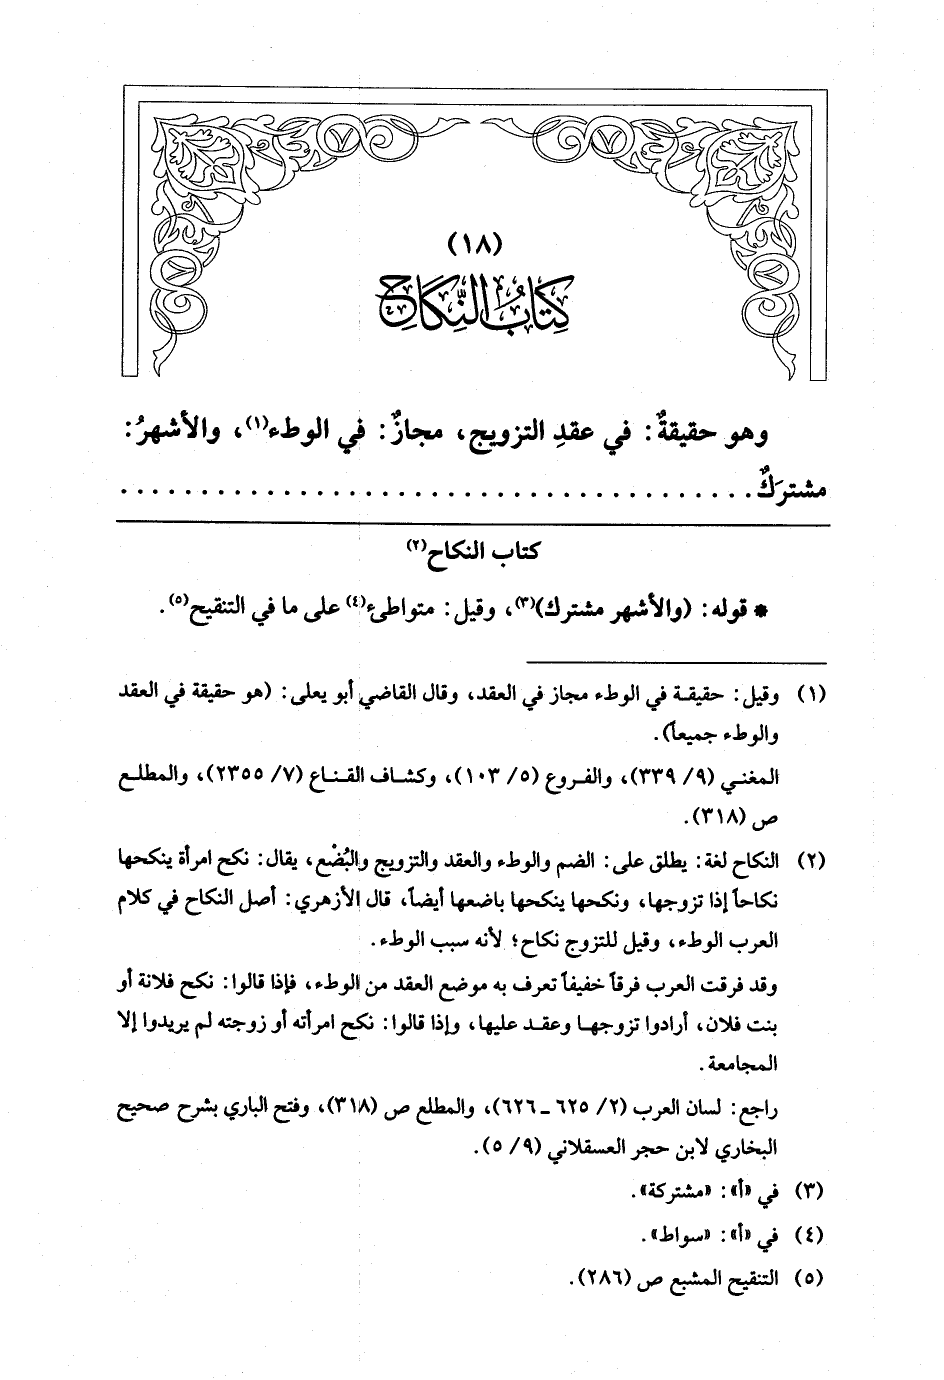 (١٨)
كِتَابُ النِّكَاحِ
وهو حقيقةٌ: في عقدِ التزويج، مجازٌ: في الوطء(١)، والأشهرُ:
مشترَكٌ......................................
كتاب النكاح(٢)
* قوله: (والأشهر مشترك)(٣)، وقيل: متواطىء(٤) على ما في التنقيح(٥).
(١) وقيل: حقيقة في الوطء مجاز في العقد، وقال القاضي أبو يعلى: (هو حقيقة في العقد
والوطء جميعاً).
المغني (٩/ ٣٣٩)، والفروع (٥/ ١٠٣)، وكشاف القناع (٧/ ٢٣٥٥)، والمطلع
ص (٣١٨).
(٢) النكاح لغة: يطلق على: الضم والوطء والعقد والتزويج والبُضْع، يقال: نكح امرأة ينكحها
نكاحاً إذا تزوجها، ونكحها ينكحها باضعها أيضاً، قال الأزهري: أصل النكاح في كلام
العرب الوطء، وقيل للتزوج نكاح؛ لأنه سبب الوطء.
وقد فرقت العرب فرقاً خفيفاً تعرف به موضع العقد من الوطء، فإذا قالوا: نكح فلانة أو
بنت فلان، أرادوا تزوجها وعقد عليها، وإذا قالوا: نكح امرأته أو زوجته لم يريدوا إلا
المجامعة.
راجع: لسان العرب (٢/ ٦٢٥ ـ ٦٢٦)، والمطلع ص (٣١٨)، وفتح الباري بشرح صحيح
البخاري لابن حجر العسقلاني (٩/ ٥).
(٣) في «أ»: «مشتركة».
(٤) في «أ»: «سواط».
(٥) التنقيح المشبع ص (٢٨٦).